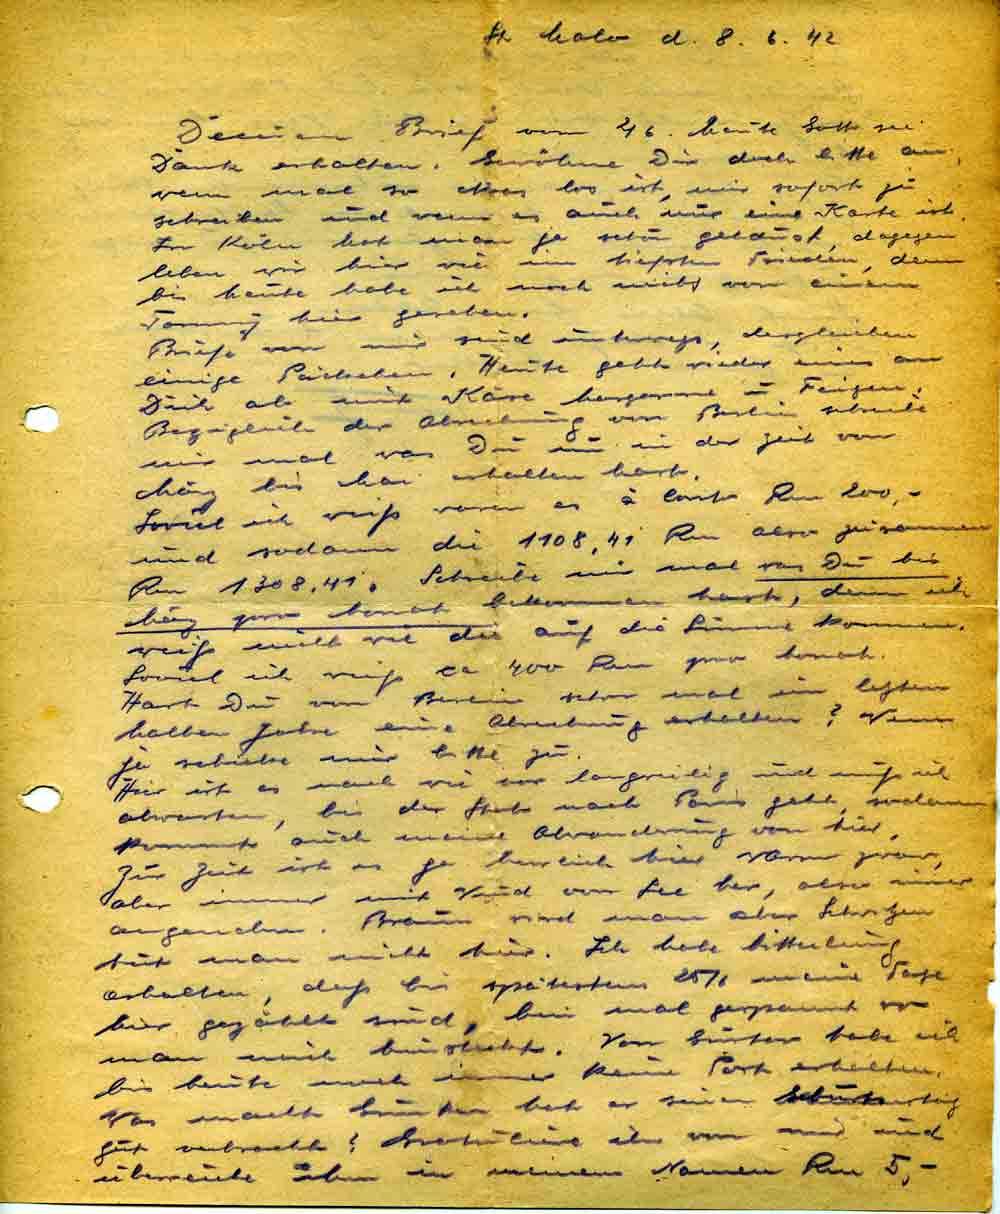 St Malo d. 8.6.42
Deinen Brief vom 4/6. heute Gott sei
Dank erhalten. Gewöhne Dir doch bitte an,
wenn mal so etwas los ist, mir sofort zu
schreiben und wenn es auch nur eine Karte ist.
In Köln hat man ja schön getobt, dagegen
leben wir hier wie im tiefsten Frieden, denn
bis heute habe ich noch nichts von einem
Tommy hier gesehen.
Briefe von mir sind unterwegs, desgleichen
einige Päckchen. Heute geht wieder eines an
Dich ab mit Käse u Feigen.
Bezüglich der Abrechnung von Berlin schreibe
mir mal was Du nun in der Zeit von
März bis Mai erhalten hast.
Soviel ich weiß waren es à Conto Rm 200,-
und sodann die 1108,41 Rm also zusammen
Rm 1308,41. Schreibe mir mal was Du bis
März pro Monat bekommen hast, denn ich
weiß nicht wie die auf die Summe kommen.
Soviel ich weiß ca 400 Rm pro Monat.
Hast Du von Berlin schon mal im letzten
halben Jahr eine Abrechnung erhalten? Wenn
ja schicke mir bitte zu.
Hier ist es nach wie vor langweilig und muß ich
abwarten, bis der Stab nach Paris geht, sodann
kommt auch meine Abwanderung von hier.
Zur Zeit ist es ja hier warm zwar,
aber immer mit Wind von See her, also immer
angenehm. Braun wird man aber Schwitzen
tut man nicht hier. Ich habe Mitteilung
erhalten, daß bis spätestens 25/6 meine Tage
hier gezählt sind, bin mal gespannt wo
man mich hinsteckt. Von habe ich
bis heute noch immer keine Post erhalten.
Was macht hat er seinen Geburtstag
gut verbracht? Gratuliere ihm von mir und
überreiche ihm in meinem Namen Rm 5,-